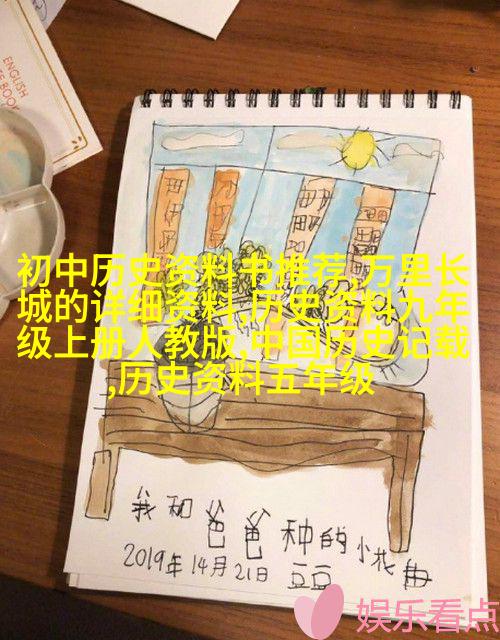 ENGLISH
E BOOK
初中历史资料书推荐,万里长
城的详细资料,历史资料九年
级上册人教版,中国历史记载
,历史资料五年级
我和爸爸种的小
2019年14月21日 豆豆
娱乐看点